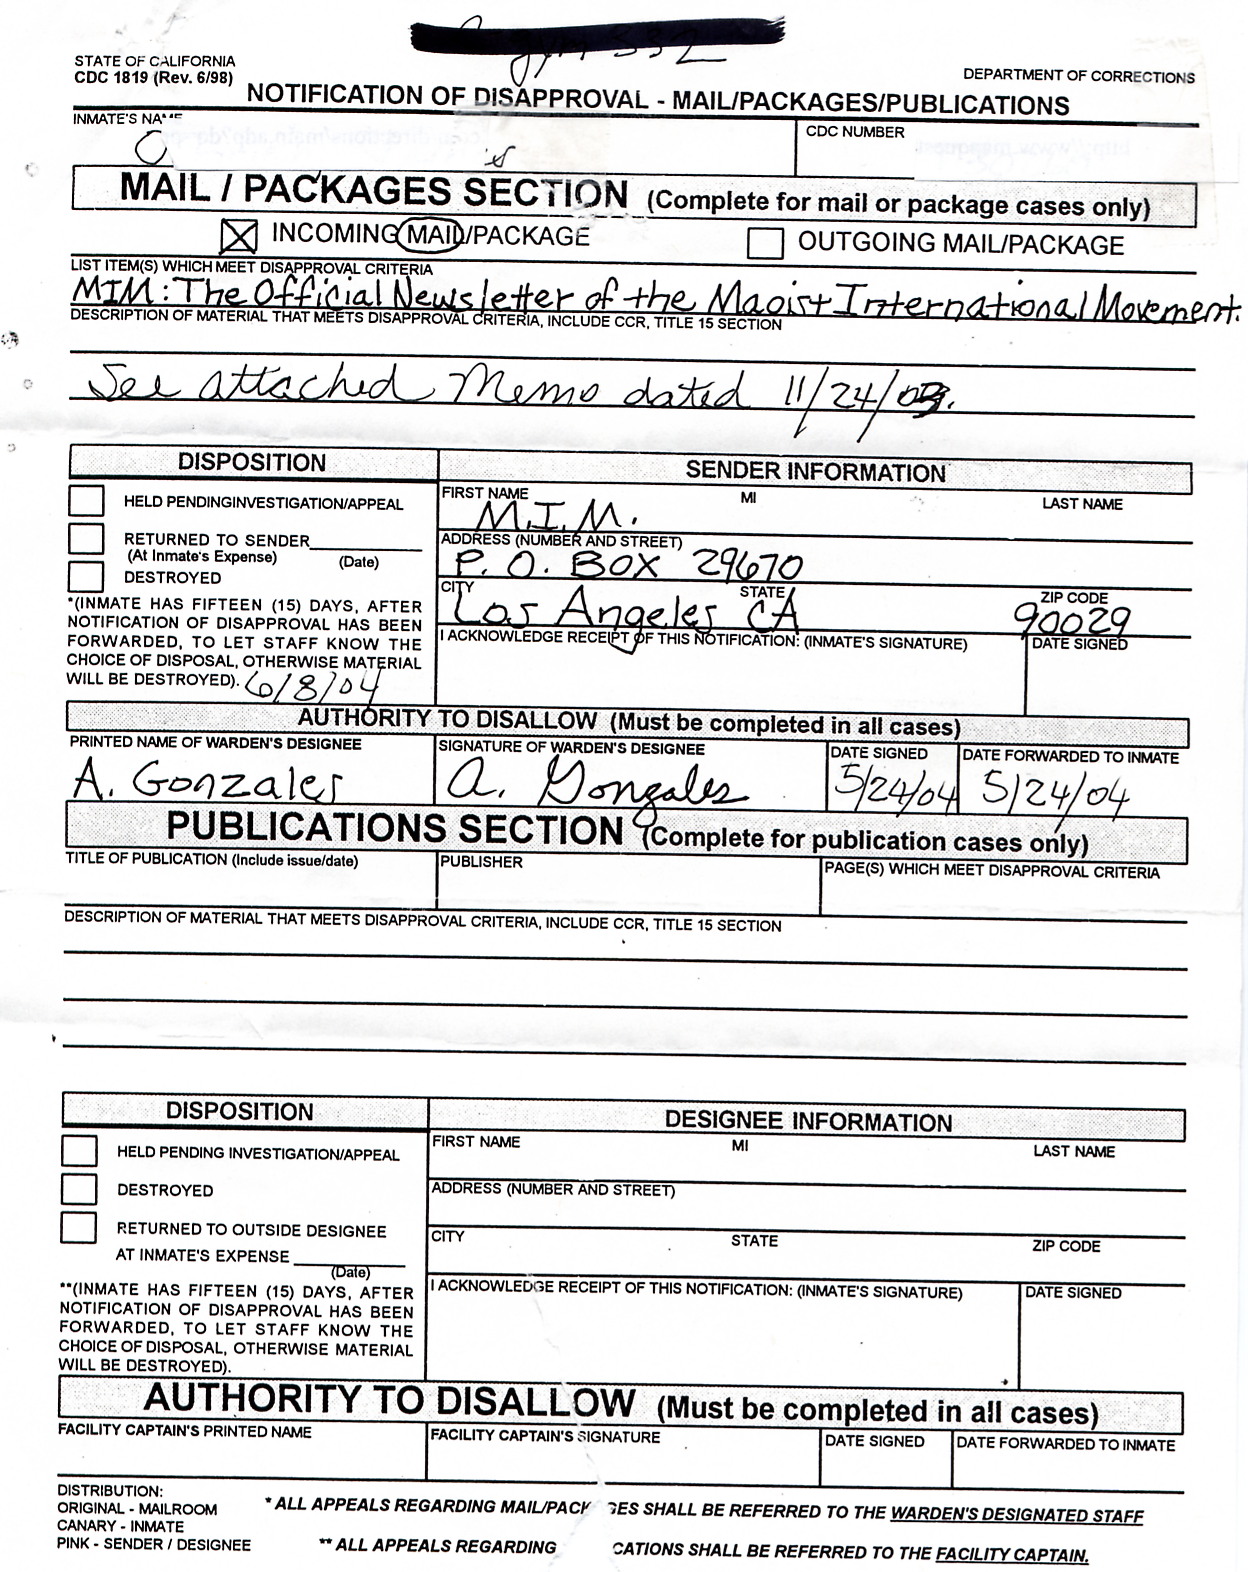 gym 332
STATE OF CALIFORNIA
CDC 1819 (Rev. 6/98)
DEPARTMENT OF CORRECTIONS
NOTIFICATION OF DISAPPROVAL - MAIL/PACKAGES/PUBLICATIONS
INMATE'S NAME
CDC NUMBER
MAIL / PACKAGES SECTION (Complete for mail or package cases only)
INCOMING MAIL/PACKAGE OUTGOING MAIL/PACKAGE
LIST ITEM(S) WHICH MEET DISAPPROVAL CRITERIA
MIM: The Official Newsletter of the Maoist International Movement.
DESCRIPTION OF MATERIAL THAT MEETS DISAPPROVAL CRITERIA, INCLUDE CCR, TITLE 15 SECTION
See attached Memo dated 11/24/03.
DISPOSITION SENDER INFORMATION
HELD PENDINGINVESTIGATION/APPEAL
FIRST NAME MI LAST NAME
M.I.M.
RETURNED TO SENDER
(At Inmate's Expense) (Date)
ADDRESS (NUMBER AND STREET)
P. O. BOX 29670
DESTROYED
CITY STATE ZIP CODE
Los Angeles CA 90029
*(INMATE HAS FIFTEEN (15) DAYS, AFTER
NOTIFICATION OF DISAPPROVAL HAS BEEN
FORWARDED, TO LET STAFF KNOW THE
CHOICE OF DISPOSAL, OTHERWISE MATERIAL
WILL BE DESTROYED). 6/8/04
I ACKNOWLEDGE RECEIPT OF THIS NOTIFICATION: (INMATE'S SIGNATURE) DATE SIGNED
AUTHORITY TO DISALLOW (Must be completed in all cases)
PRINTED NAME OF WARDEN'S DESIGNEE SIGNATURE OF WARDEN'S DESIGNEE DATE SIGNED DATE FORWARDED TO INMATE
A. Gonzales A. Gonzales 5/24/04 5/24/04
PUBLICATIONS SECTION (Complete for publication cases only)
TITLE OF PUBLICATION (Include issue/date) PUBLISHER PAGE(S) WHICH MEET DISAPPROVAL CRITERIA
DESCRIPTION OF MATERIAL THAT MEETS DISAPPROVAL CRITERIA, INCLUDE CCR, TITLE 15 SECTION
DISPOSITION DESIGNEE INFORMATION
HELD PENDING INVESTIGATION/APPEAL
FIRST NAME MI LAST NAME
DESTROYED
ADDRESS (NUMBER AND STREET)
RETURNED TO OUTSIDE DESIGNEE
AT INMATE'S EXPENSE
(Date)
CITY STATE ZIP CODE
**(INMATE HAS FIFTEEN (15) DAYS, AFTER
NOTIFICATION OF DISAPPROVAL HAS BEEN
FORWARDED, TO LET STAFF KNOW THE
CHOICE OF DISPOSAL, OTHERWISE MATERIAL
WILL BE DESTROYED).
I ACKNOWLEDGE RECEIPT OF THIS NOTIFICATION: (INMATE'S SIGNATURE) DATE SIGNED
AUTHORITY TO DISALLOW (Must be completed in all cases)
FACILITY CAPTAIN'S PRINTED NAME FACILITY CAPTAIN'S SIGNATURE DATE SIGNED DATE FORWARDED TO INMATE
DISTRIBUTION:
ORIGINAL - MAILROOM
CANARY - INMATE
PINK - SENDER / DESIGNEE
* ALL APPEALS REGARDING MAIL/PACK GES SHALL BE REFERRED TO THE WARDEN'S DESIGNATED STAFF
** ALL APPEALS REGARDING CATIONS SHALL BE REFERRED TO THE FACILITY CAPTAIN.